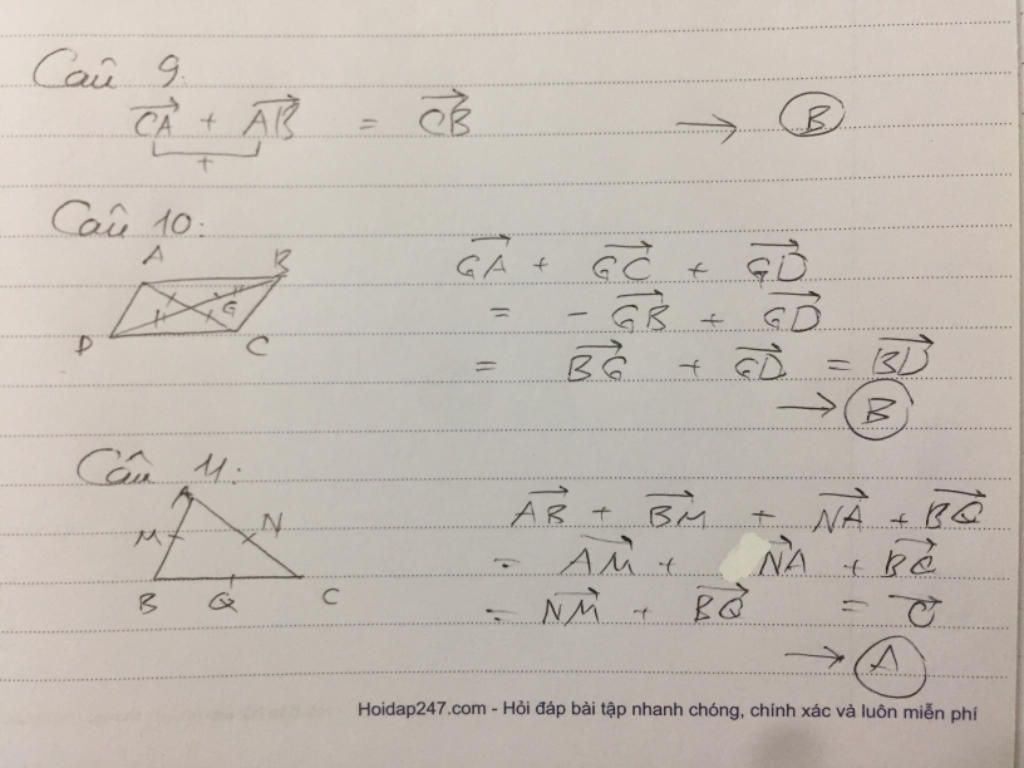 Câu 9.
CA + AB = CB → B
+
Câu 10:
A B
G
D C
GA + GC + GD
= - GB + GD
= BG + GD = BD
→ B
Câu 11:
A
M N
B Q C
AB + BM + NA + BQ
= AM + NA + BQ
= NM + BQ = O
→ A
Hoidap247.com - Hỏi đáp bài tập nhanh chóng, chính xác và luôn miễn phí